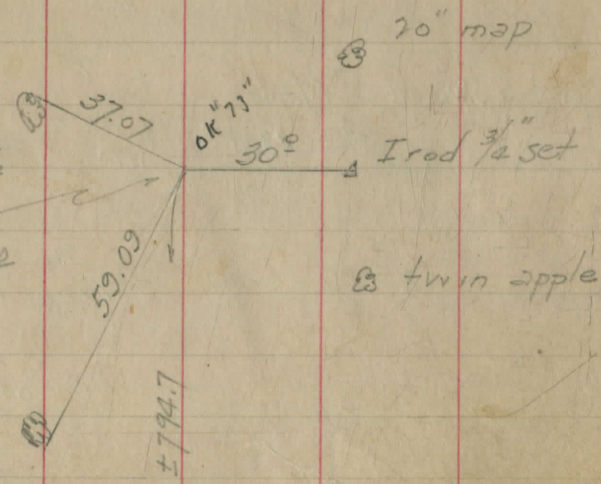 20" map
37.07
OK "73"
30º
I rod 3/4" set
59.09
twin apple
±794.7